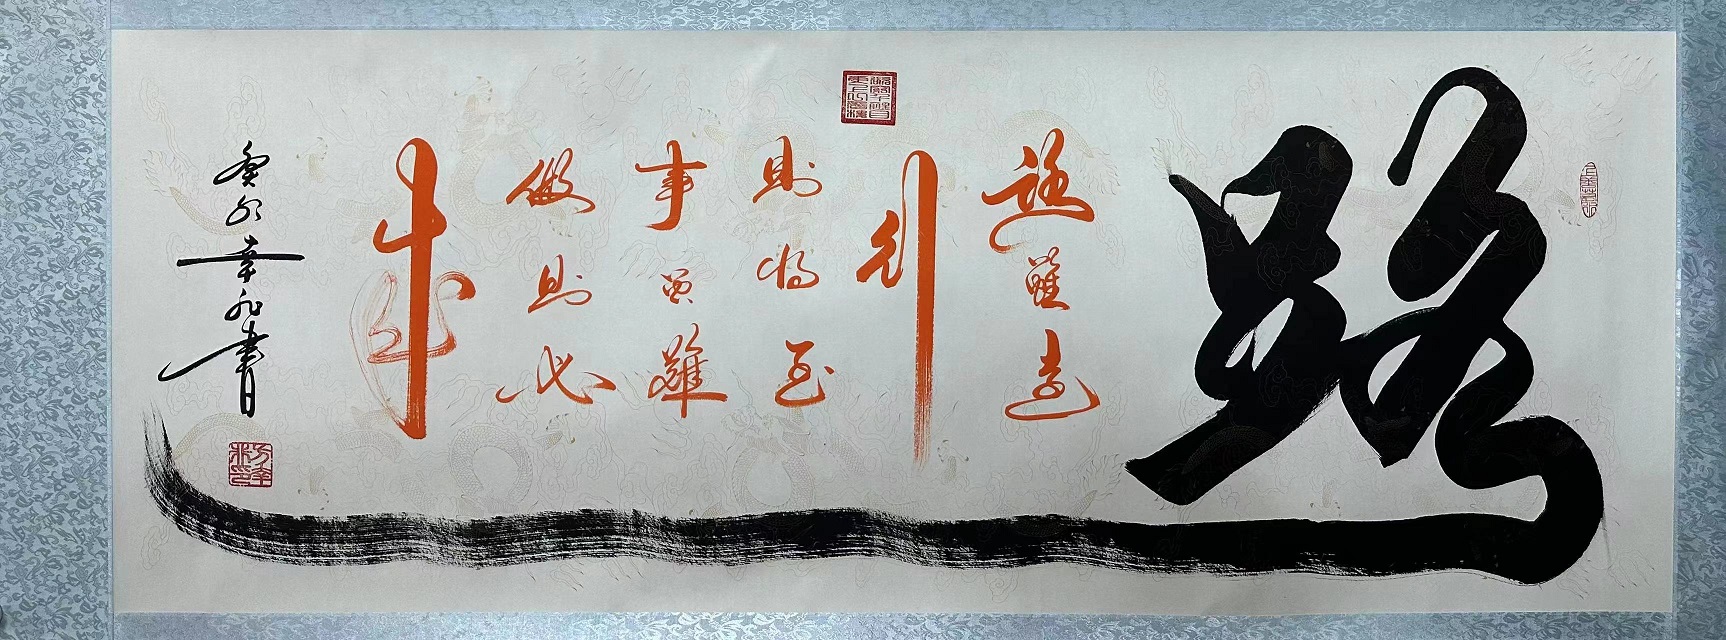 路
路虽远
行
则将至
事虽难
做则必
成
癸卯幸福书